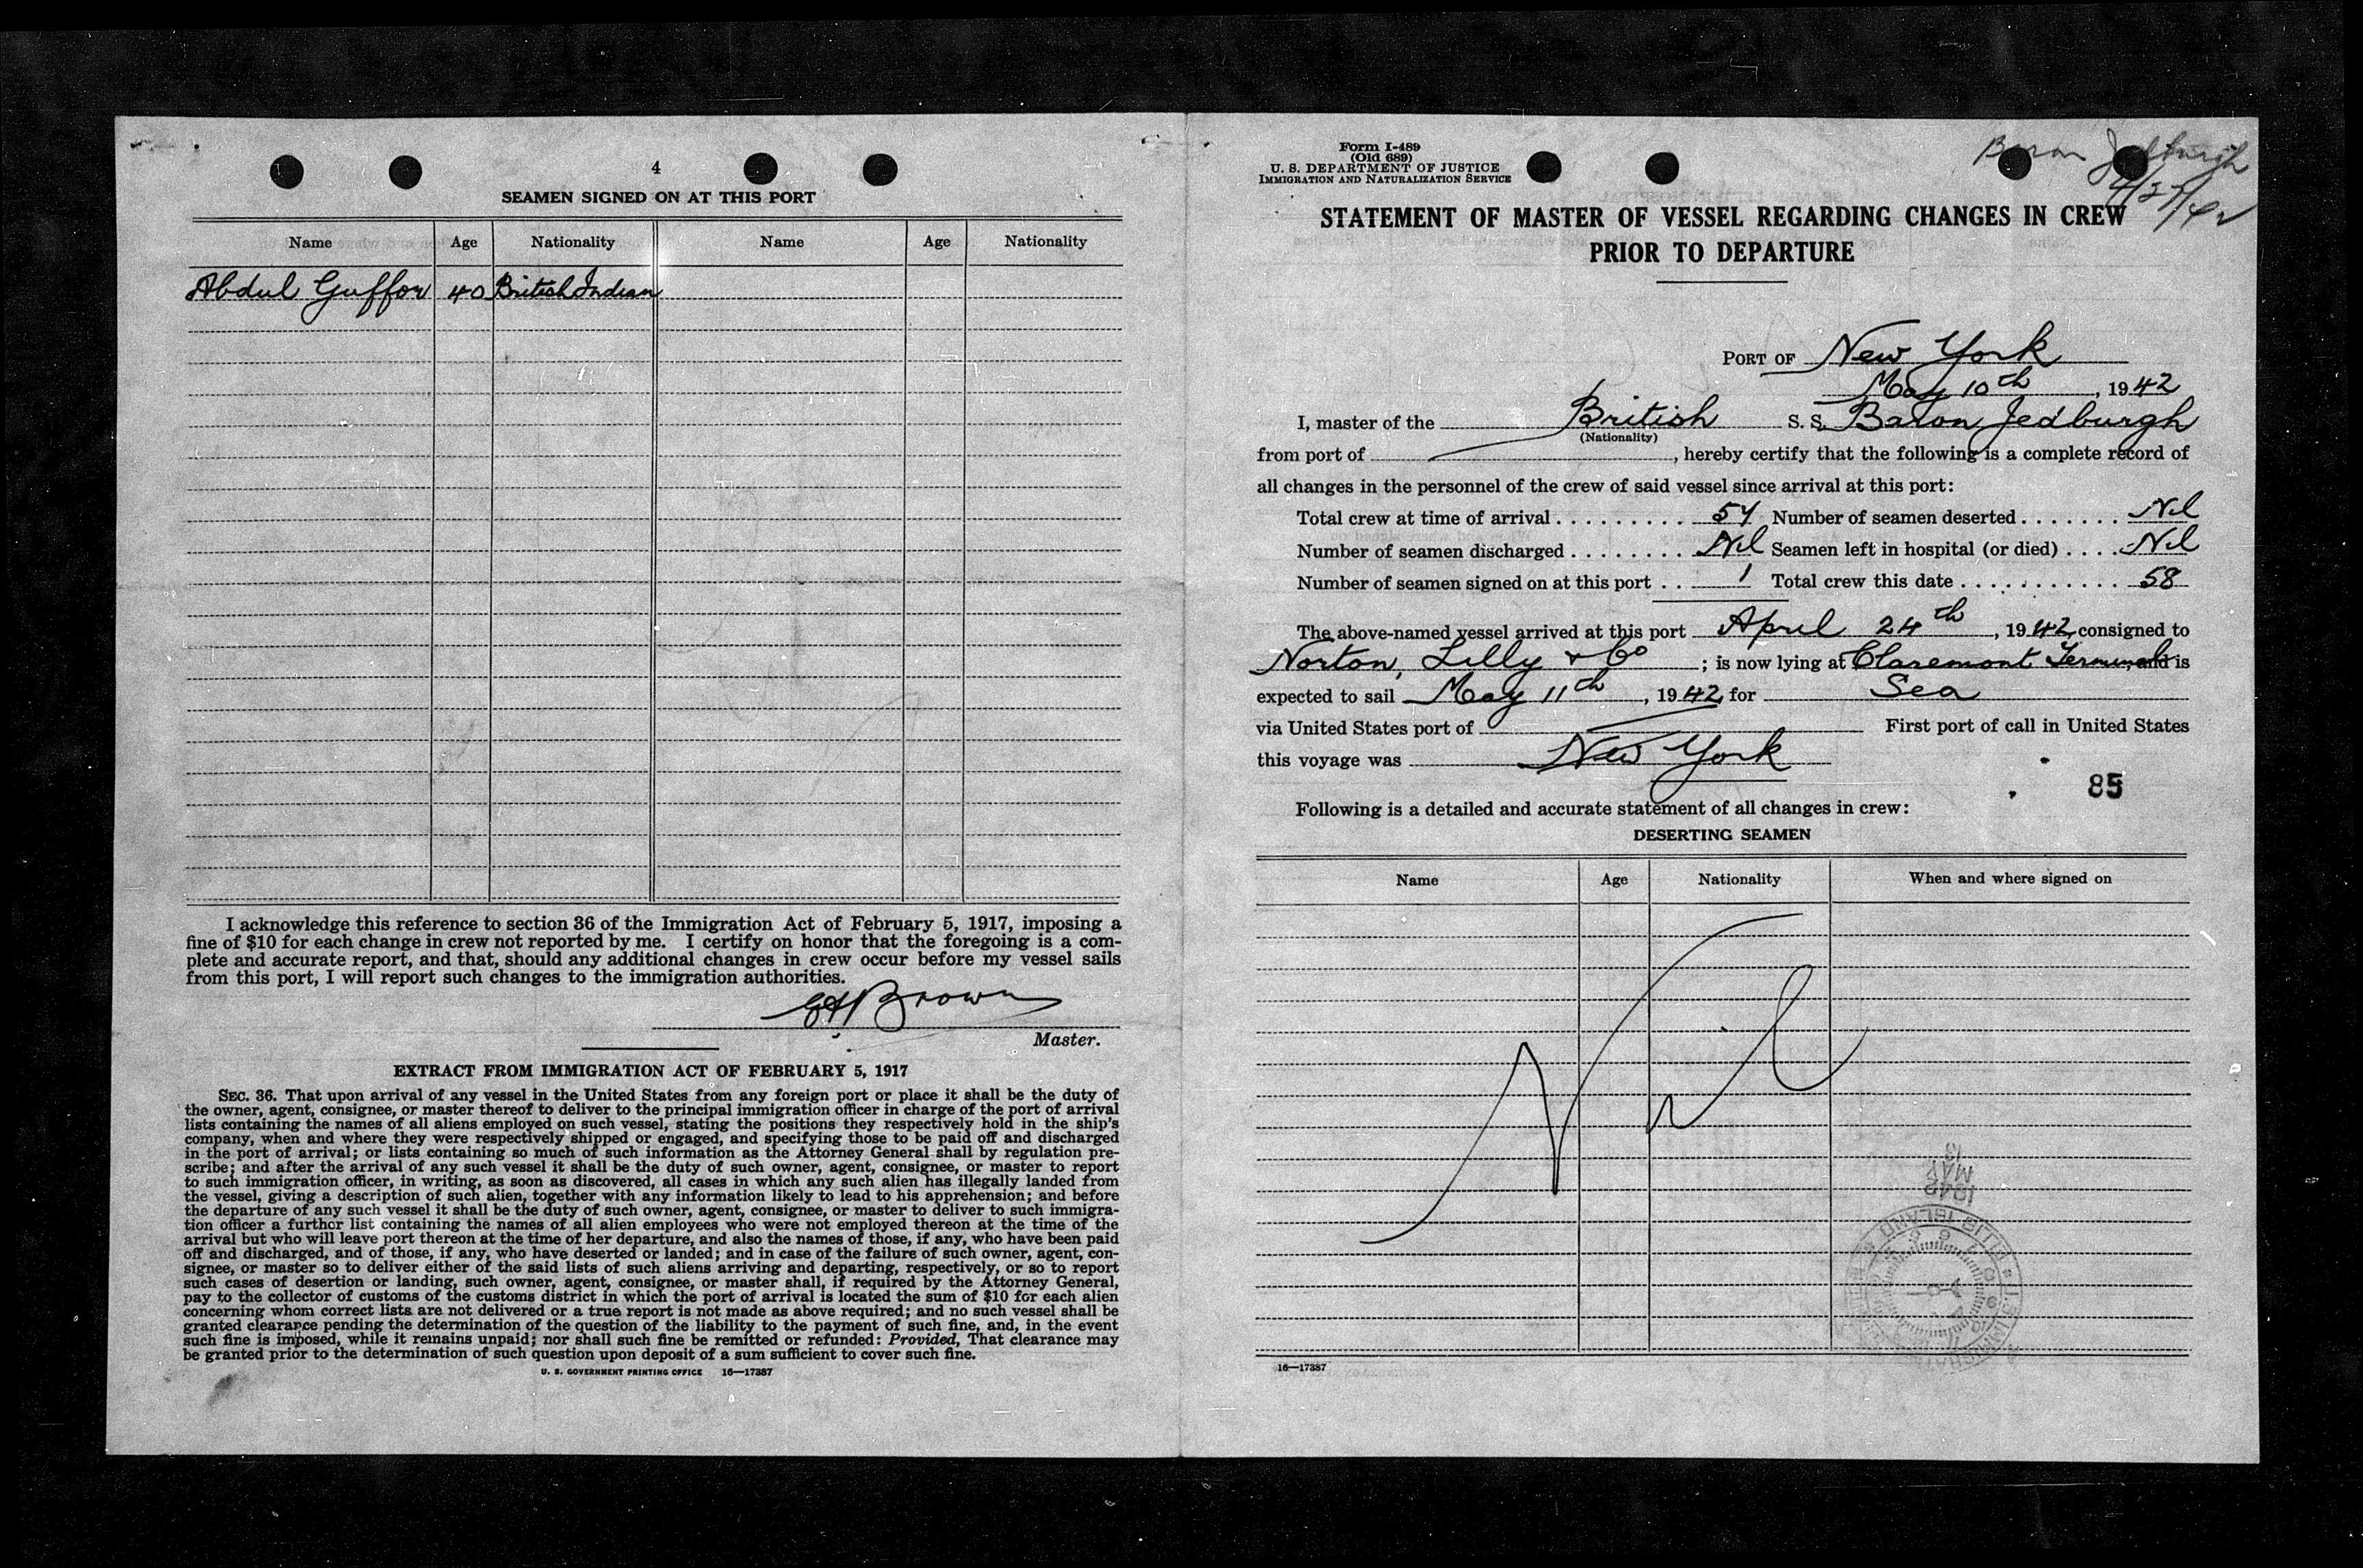 4
SEAMEN SIGNED ON AT THIS PORT
Name Age Nationality Name Age Nationality
Abdul Guffor 40 British Indian
I acknowledge this reference to section 36 of the Immigration Act of February 5, 1917, imposing a
fine of $10 for each change in crew not reported by me. I certify on honor that the foregoing is a com-
plete and accurate report, and that, should any additional changes in crew occur before my vessel sails
from this port, I will report such changes to the immigration authorities.
Brown
Master.
EXTRACT FROM IMMIGRATION ACT OF FEBRUARY 5, 1917
SEC. 36. That upon arrival of any vessel in the United States from any foreign port or place it shall be the duty of
the owner, agent, consignee, or master thereof to deliver to the principal immigration officer in charge of the port of arrival
lists containing the names of all aliens employed on such vessel, stating the positions they respectively hold in the ship's
company, when and where they were respectively shipped or engaged, and specifying those to be paid off and discharged
in the port of arrival; or lists containing so much of such information as the Attorney General shall by regulation pre-
scribe; and after the arrival of any such vessel it shall be the duty of such owner, agent, consignee, or master to report
to such immigration officer, in writing, as soon as discovered, all cases in which any such alien has illegally landed from
the vessel, giving a description of such alien, together with any information likely to lead to his apprehension; and before
the departure of any such vessel it shall be the duty of such owner, agent, consignee, or master to deliver to such immigra-
tion officer a further list containing the names of all alien employees who were not employed thereon at the time of the
arrival but who will leave port thereon at the time of her departure, and also the names of those, if any, who have been paid
off and discharged, and of those, if any, who have deserted or landed; and in case of the failure of such owner, agent, con-
signee, or master so to deliver either of the said lists of such aliens arriving and departing, respectively, or so to report
such cases of desertion or landing, such owner, agent, consignee, or master shall, if required by the Attorney General,
pay to the collector of customs of the customs district in which the port of arrival is located the sum of $10 for each alien
concerning whom correct lists are not delivered or a true report is not made as above required; and no such vessel shall be
granted clearance pending the determination of the question of the liability to the payment of such fine, and, in the event
such fine is imposed, while it remains unpaid; nor shall such fine be remitted or refunded: Provided, That clearance may
be granted prior to the determination of such question upon deposit of a sum sufficient to cover such fine.
U. S. GOVERNMENT PRINTING OFFICE 16—17387
Form I-489
(Old 689)
U. S. DEPARTMENT OF JUSTICE
IMMIGRATION AND NATURALIZATION SERVICE
Baron Jedburgh
STATEMENT OF MASTER OF VESSEL REGARDING CHANGES IN CREW
PRIOR TO DEPARTURE
PORT OF New York
May 10th, 1942
I, master of the British S. S. Baron Jedburgh
(Nationality)
from port of , hereby certify that the following is a complete record of
all changes in the personnel of the crew of said vessel since arrival at this port:
Total crew at time of arrival . . . . . . . . . 57 Number of seamen deserted . . . . . . . Nil
Number of seamen discharged . . . . . . . . Nil Seamen left in hospital (or died) . . . . Nil
Number of seamen signed on at this port . . 1 Total crew this date . . . . . . . . . . . 58
The above-named vessel arrived at this port April 24th, 1942, consigned to
Norton, Lilly & Co ; is now lying at Claremont Terminal, and is
expected to sail May 11th, 1942, for Sea
via United States port of First port of call in United States
this voyage was New York
85
Following is a detailed and accurate statement of all changes in crew:
DESERTING SEAMEN
Name Age Nationality When and where signed on
Nil
1942
MAY
13
ELLIS ISLAND
16—17387